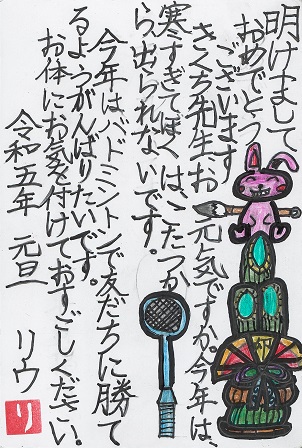 明けまして
おめでとう
ございます
きくち先生お元気ですか今年は
寒すぎてぼくはこたつか
ら、出られないです。
今年はバドミントンで友だちに勝て
るようがんばりたいです。
お体にお気を付けておすごしください。
令和五年 元旦 リウ
り